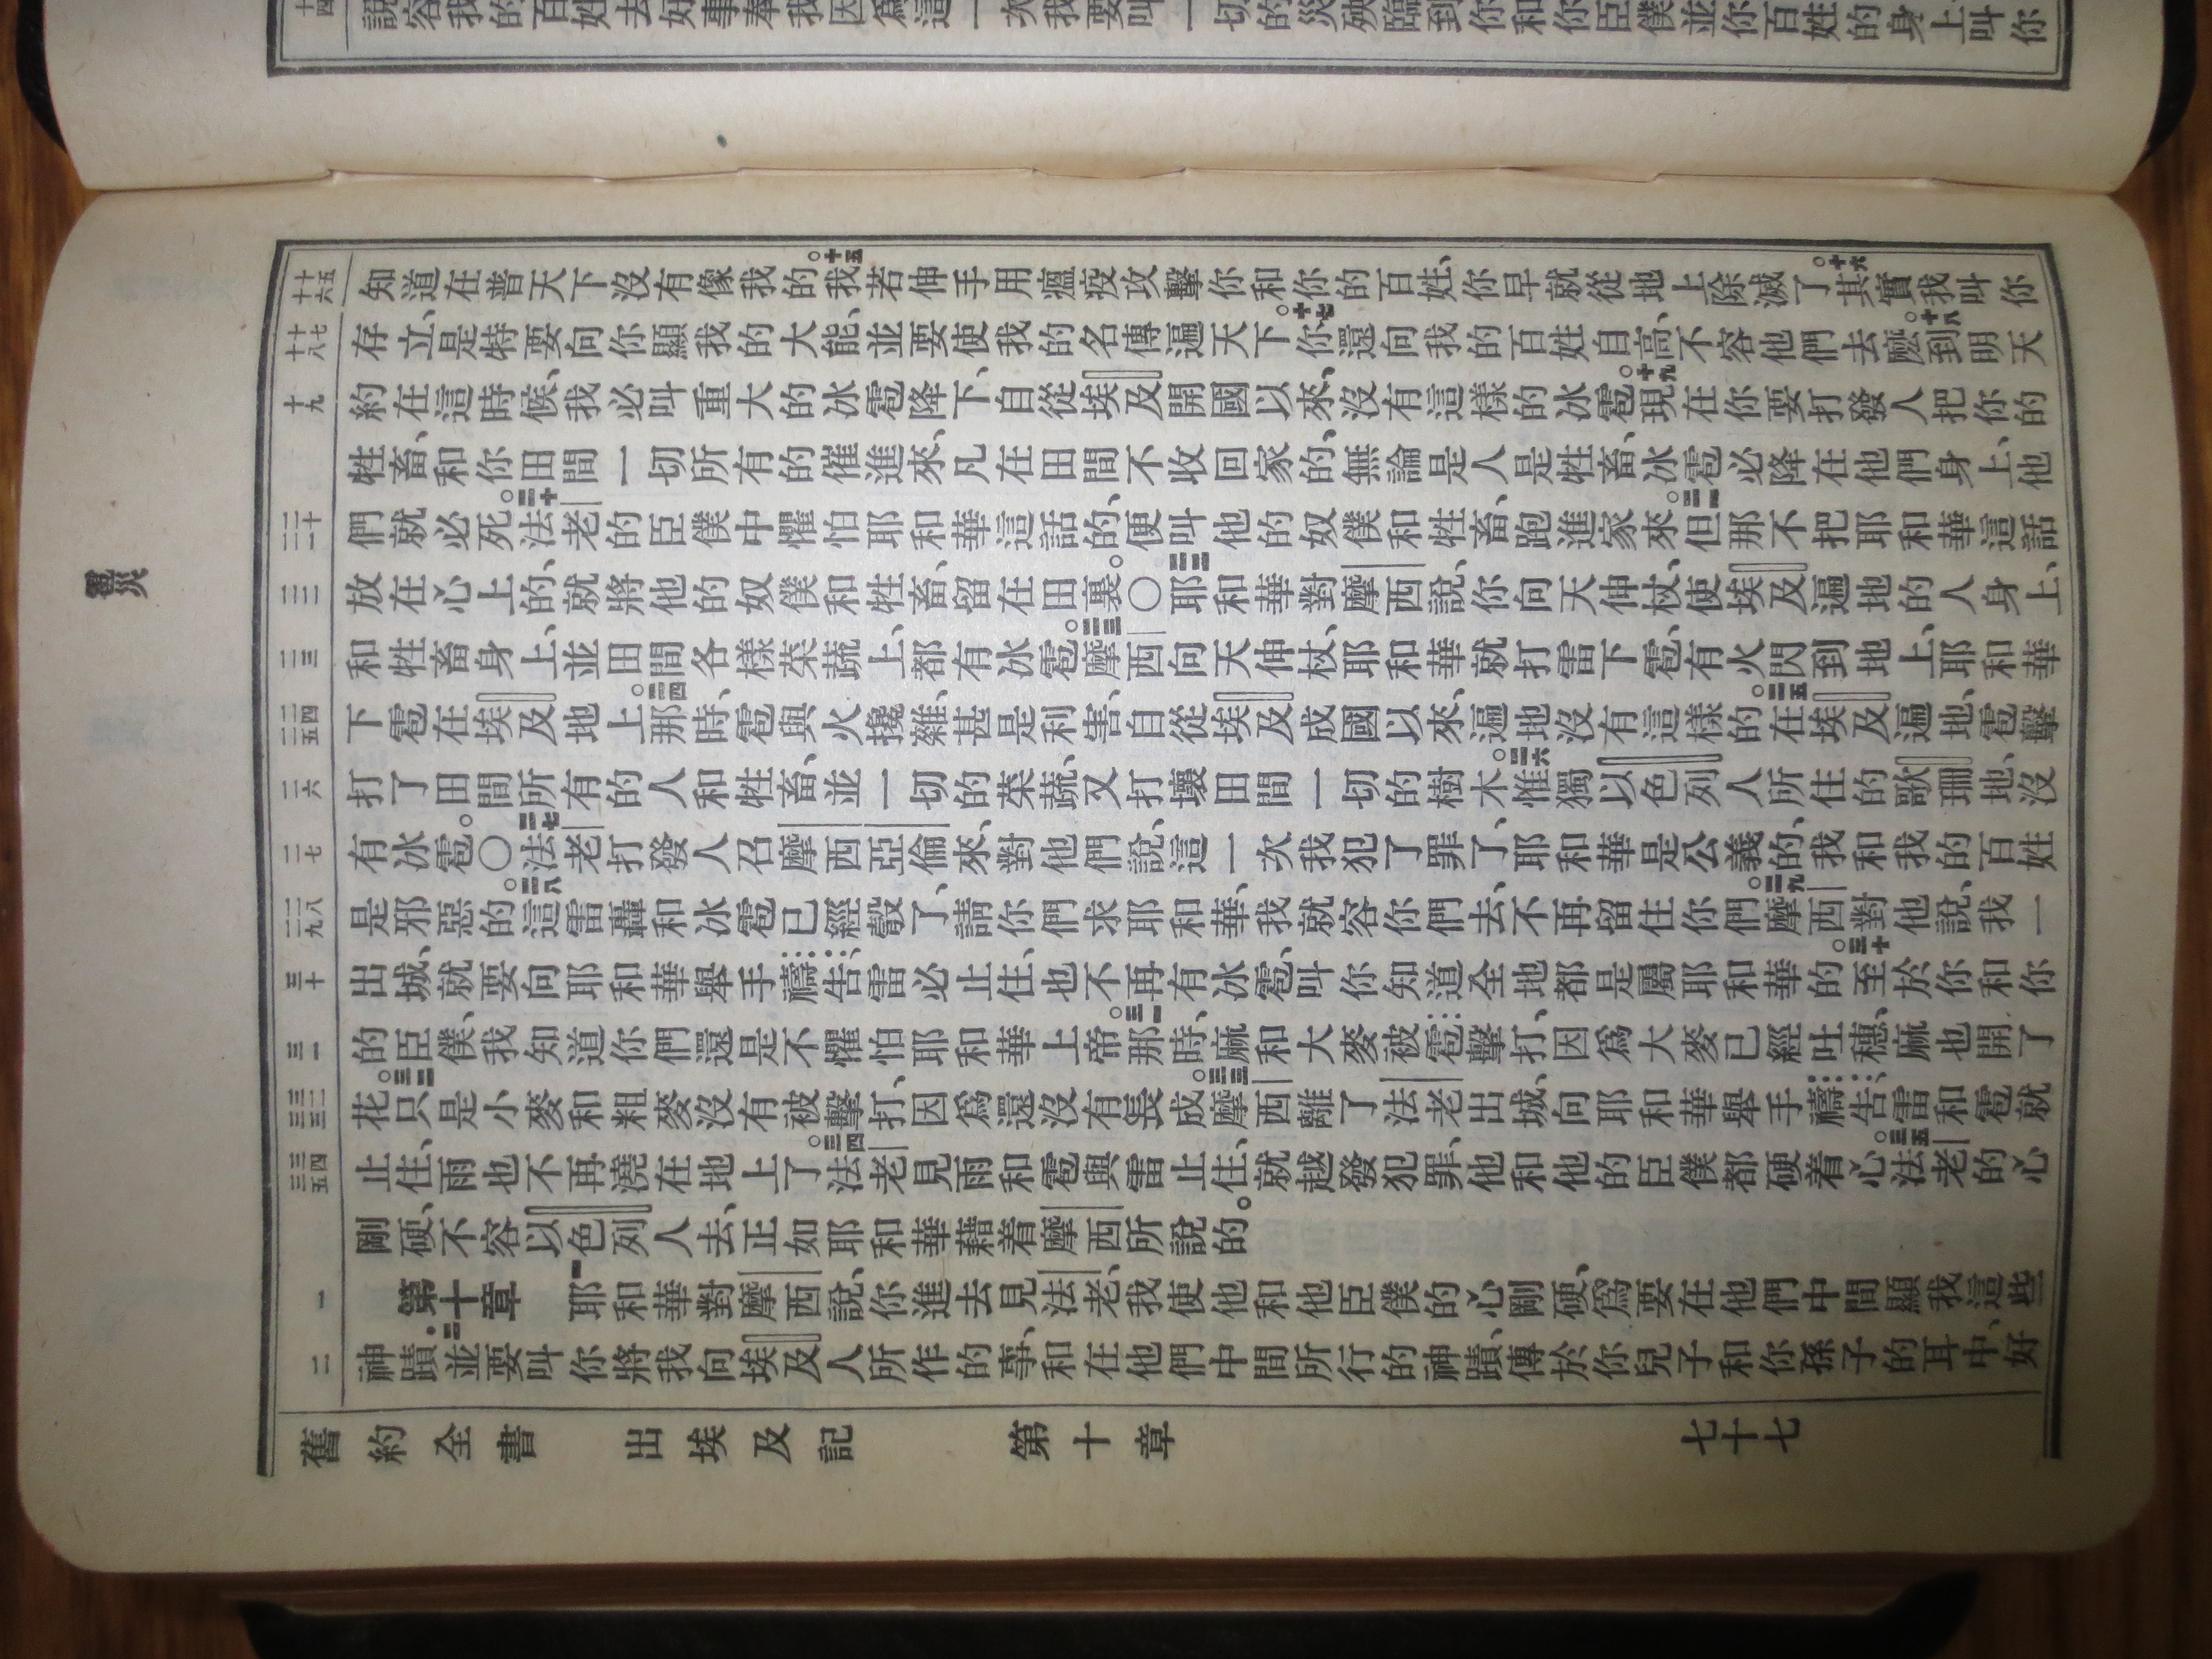 十四
說容我的百姓去好事奉我因爲這一次我要叫一切的災殃臨到你和你臣僕並你百姓的身上叫你
雹災
十五
十六
知道在普天下沒有像我的。十五我若伸手用瘟疫攻擊你和你的百姓、你早就從地上除滅了。十六其實我叫你
十七
十八
存立、是特要向你顯我的大能、並要使我的名傳遍天下。十七你還向我的百姓自高、不容他們去麽。十八到明天
十九
約在這時候、我必叫重大的冰雹降下、自從埃及開國以來、沒有這樣的冰雹。十九現在你要打發人把你的
牲畜、和你田間一切所有的催進來、凡在田間不收回家的、無論是人是牲畜、冰雹必降在他們身上、他
二十
二一
們就必死。二十法老的臣僕中懼怕耶和華這話的、便叫他的奴僕和牲畜、跑進家來。二一但那不把耶和華這話
二二
放在心上的、就將他的奴僕和牲畜、留在田裏。〇二二耶和華對摩西說、你向天伸杖、使埃及遍地的人身上、
二三
和牲畜身上、並田間各樣菜蔬上、都有冰雹。二三摩西向天伸杖、耶和華就打雷下雹、有火閃到地上、耶和華
二四
二五
下雹在埃及地上。二四那時、雹與火攙雜、甚是利害、自從埃及成國以來、遍地沒有這樣的。二五在埃及遍地、雹擊
二六
打了田間所有的人和牲畜、並一切的菜蔬、又打壞田間一切的樹木。二六惟獨以色列人所住的歌珊地、沒
二七
有冰雹。〇二七法老打發人召摩西亞倫來、對他們說、這一次我犯了罪了、耶和華是公義的、我和我的百姓
二八
二九
是邪惡的。二八這雷轟和冰雹已經彀了、請你們求耶和華、我就容你們去、不再留住你們。二九摩西對他說、我一
三十
出城、就要向耶和華舉手禱告、雷必止住、也不再有冰雹、叫你知道全地都是屬耶和華的。三十至於你和你
三一
的臣僕、我知道你們還是不懼怕耶和華上帝。三一那時、麻和大麥被雹擊打、因爲大麥已經吐穗、麻也開了
三二
三三
花。三二只是小麥和粗麥沒有被擊打、因爲還沒有長成。三三摩西離了法老出城、向耶和華舉手禱告、雷和雹就
三四
三五
止住、雨也不再澆在地上了。三四法老見雨和雹與雷止住、就越發犯罪、他和他的臣僕都硬着心。三五法老的心
剛硬、不容以色列人去、正如耶和華藉着摩西所說的。
一
第十章 一耶和華對摩西說、你進去見法老、我使他和他臣僕的心剛硬、爲要在他們中間顯我這些
二
神蹟.二並要叫你將我向埃及人所作的事、和在他們中間所行的神蹟、傳於你兒子和你孫子的耳中、好
舊約全書 出埃及記 第十章 七十七